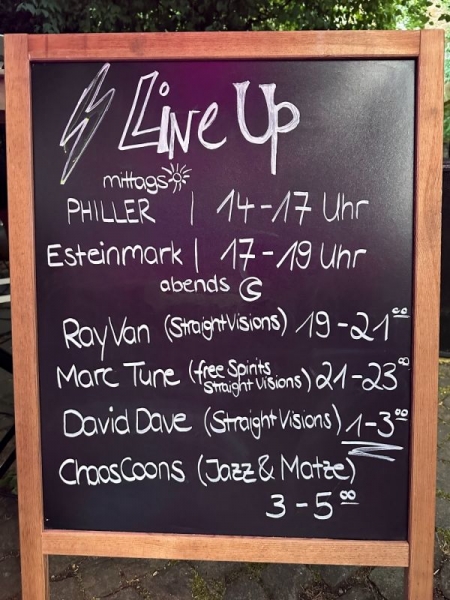 Line Up
mittags
PHILLER | 14-17 Uhr
Esteinmark | 17-19 Uhr
abends
RayVan (StraightVisions) 19-21⁰⁰
Marc Tune (free Spirits Straight Visions) 21-23⁰⁰
David Dave (StraightVisions) 1-3⁰⁰
ChaosCoons (Jazz & Matze)
3-5⁰⁰